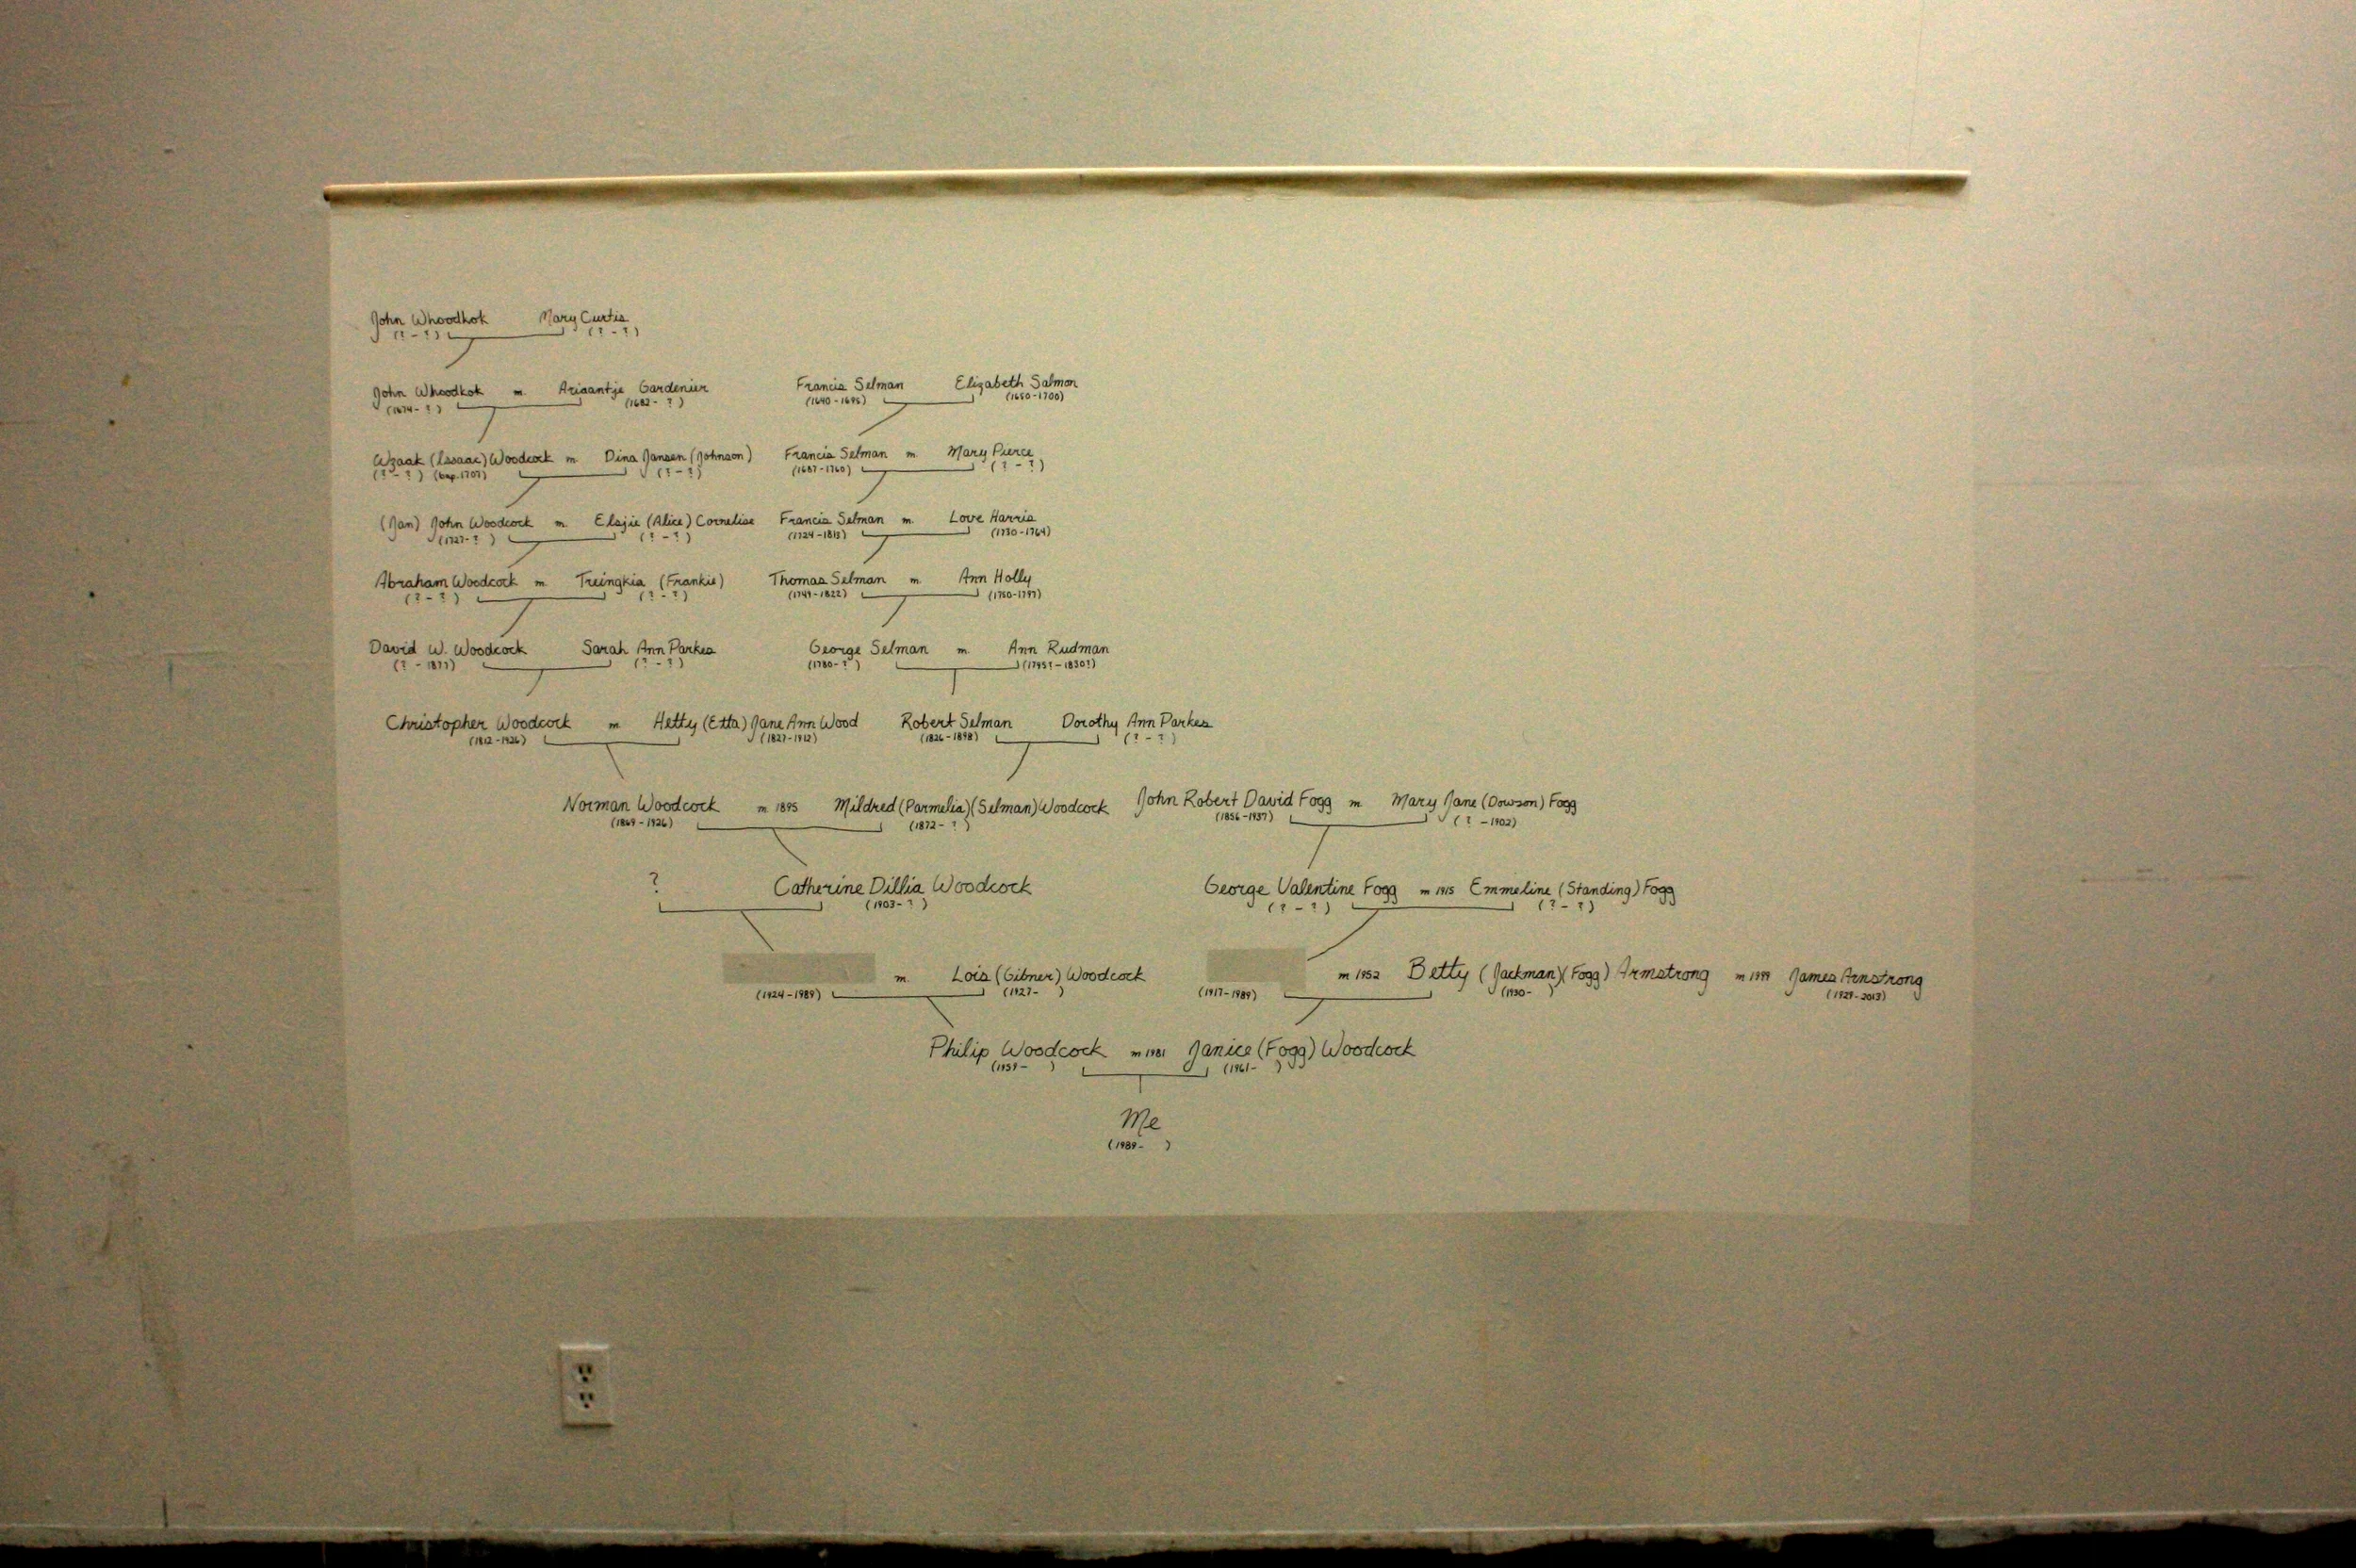 John Whoodhok Mary Curtis
(? - ?) (? - ?)
John Whoodkok m. Ariaantje Gardenier Francis Selman Elizabeth Salmon
(1674- ?) (1682- ?) (1640-1695) (1650-1700)
(Issaac) Woodcock m. Dina Jansen (Johnson) Francis Selman m. Mary Pierce
(? - ?) (bap. 1707) (? - ?) (1687-1760) (? - ?)
(Jan) John Woodcock m. Elsjie (Alice) Cornelise Francis Selman m. Love Harris
(1727- ?) (? - ?) (1724-1815) (1730-1764)
Abraham Woodcock m. Treingkia (Frankie) Thomas Selman m. Ann Holly
(? - ?) (? - ?) (1749-1822) (1750-1797)
David W. Woodcock Sarah Ann Parkes George Selman m. Ann Rudman
(? - 1877) (? - ?) (1780- ?) (1795? - 1830?)
Christopher Woodcock m Hetty (Etta) Jane Ann Wood Robert Selman Dorothy Ann Parkes
(1827-1912) (1826-1898) (? - ?)
Norman Woodcock m 1895 Mildred (Parmelia) (Selman) Woodcock John Robert David Fogg m Mary Jane (Dowson) Fogg
(1869-1926) (1872- ?) (1856-1937) (? -1902)
? Catherine Dillia Woodcock George Valentine Fogg m 1915 Emmeline (Standing) Fogg
(1903- ?) (? - ?) (? - ?)
m. Lois (Gibner) Woodcock m 1952 Betty (Jackman) (Fogg) Armstrong m 1999 James Armstrong
(1924-1989) (1927- ) (1917-1989) (1930- ) (1929-2013)
Philip Woodcock m 1981 Janice (Fogg) Woodcock
(1959- ) (1961- )
Me
(1989- )